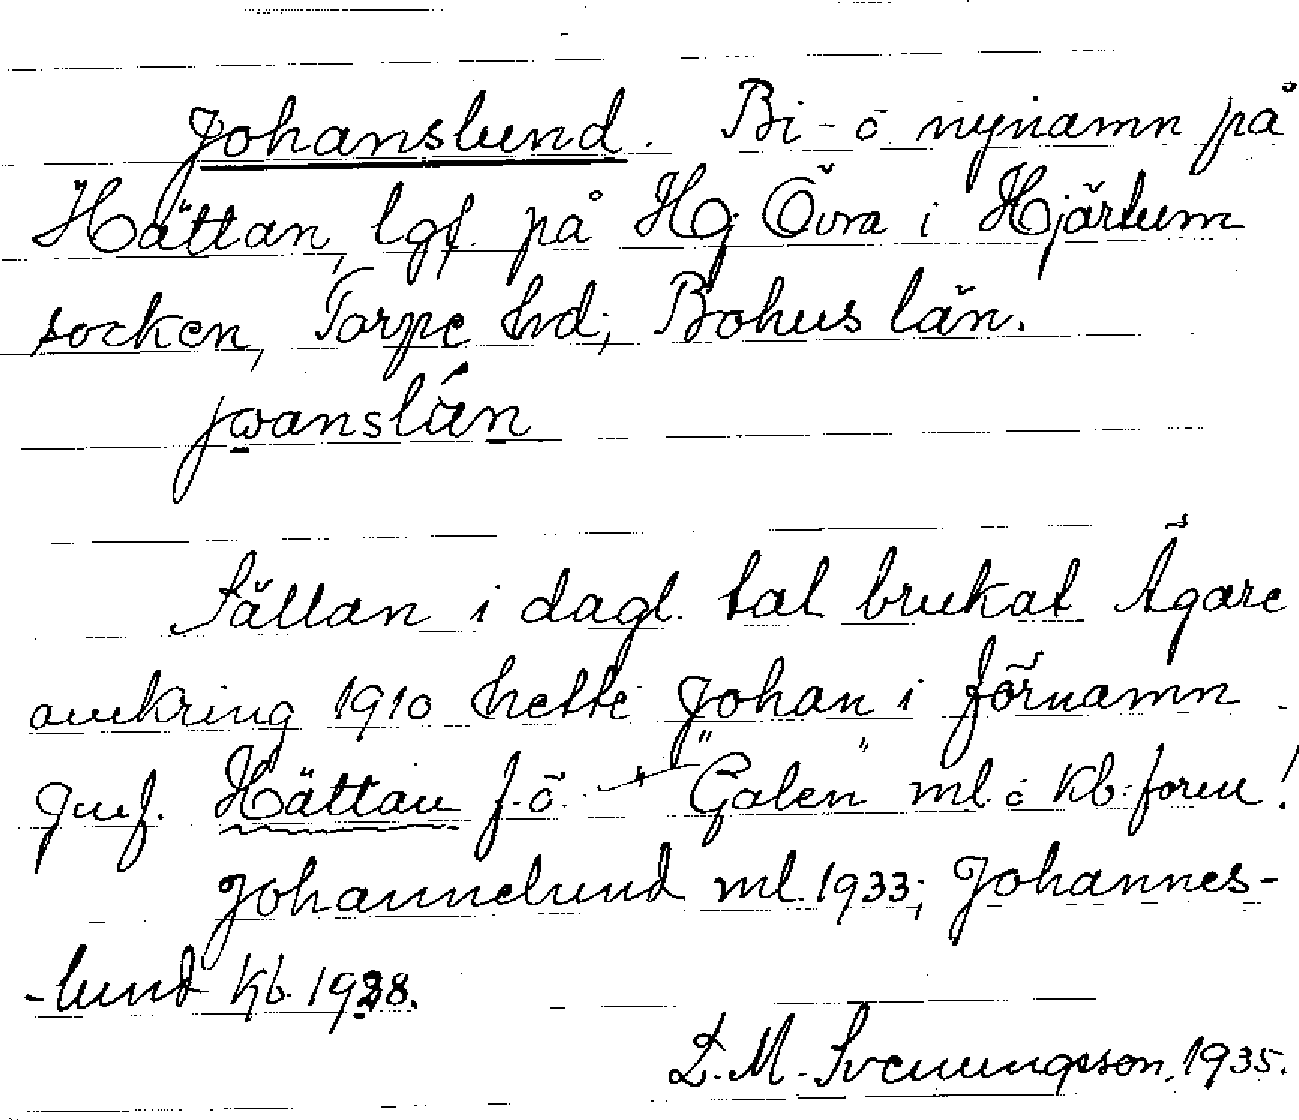 Johanslund. Bi- o. nynamn på
Hättan, lgf. på Hg Övra i Hjärtum
socken, Torpe hrd; Bohus län.
jωanslán
Sällan i dagl. tal brukat Ägare
omkring 1910 hette Johan i förnamn
Jmf. Hättan f.ö. "Galen" ml. o kb.-form!
Johannelund ml. 1933; Johannes-
-lund kb. 1928.
D. M. Svenungsson, 1935.